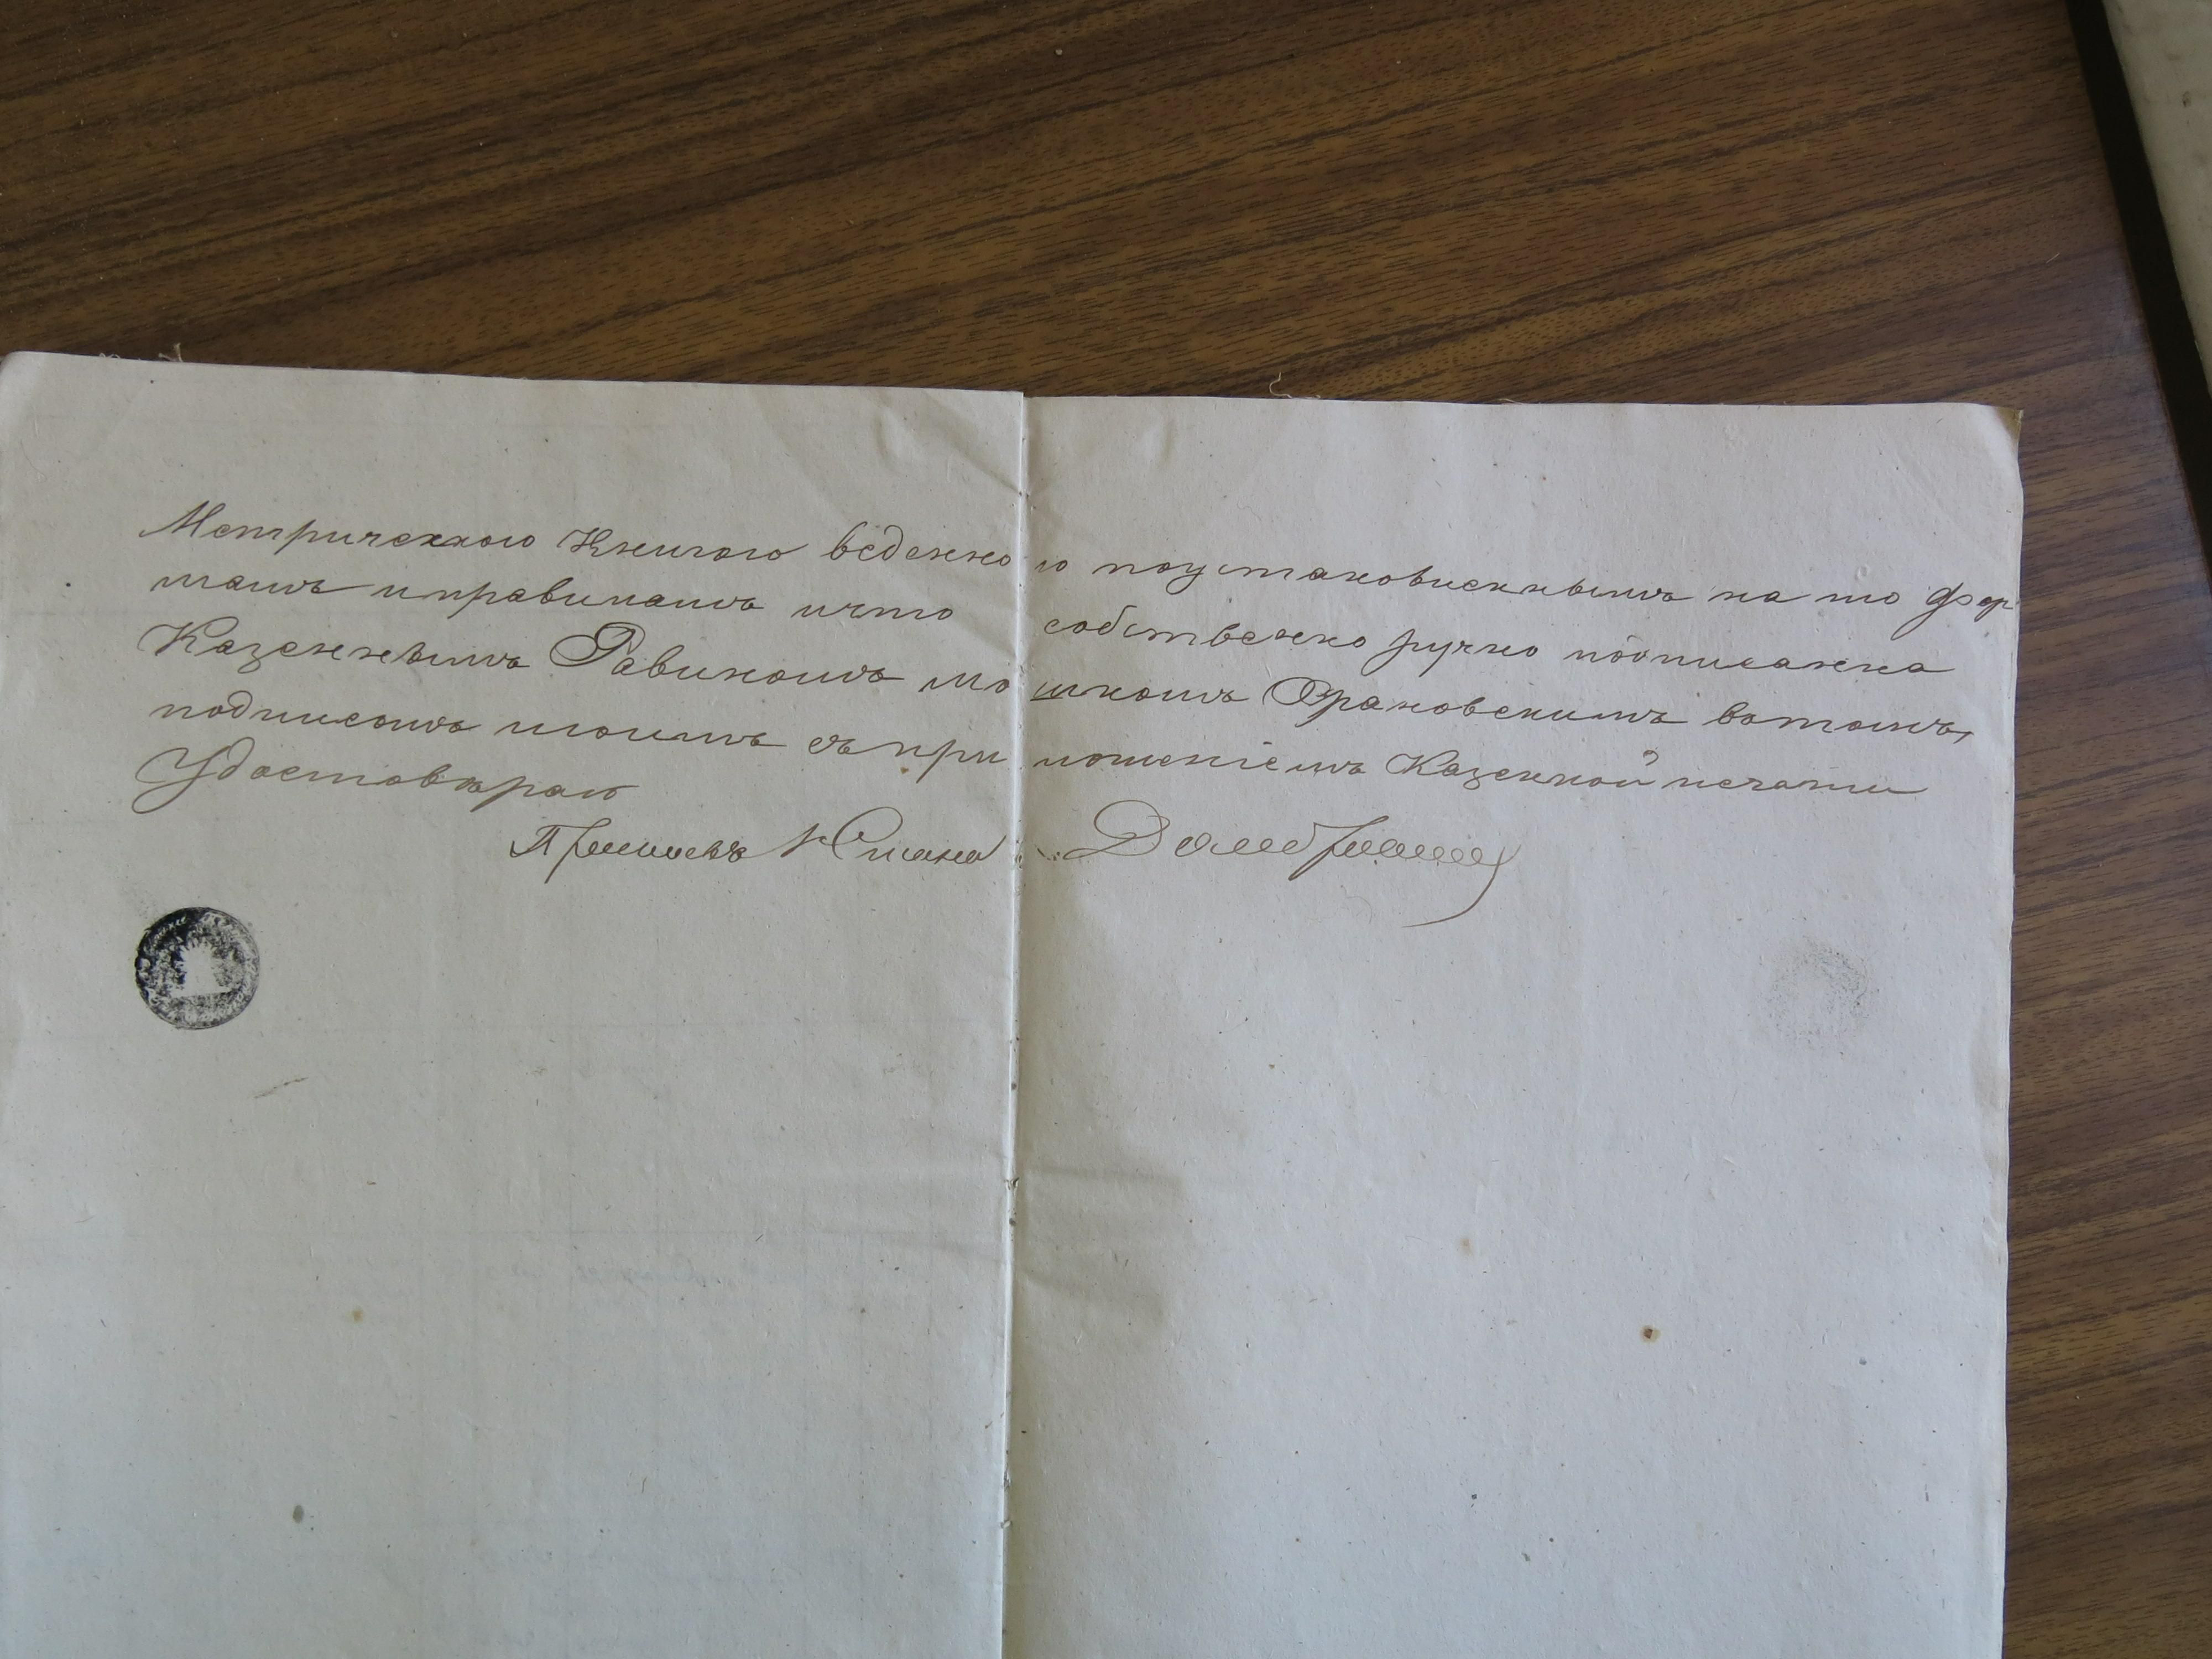 Метрическою Книгою веденною поустановленнымъ на то фор
мамъ иправиламъ ичто собственно ручно подписанна
Казеннымъ Равиномъ Мошкомъ Грановскимъ вотомъ,
подписомъ моимъ съ приложеніемъ Казенной печати
Удостовѣраю